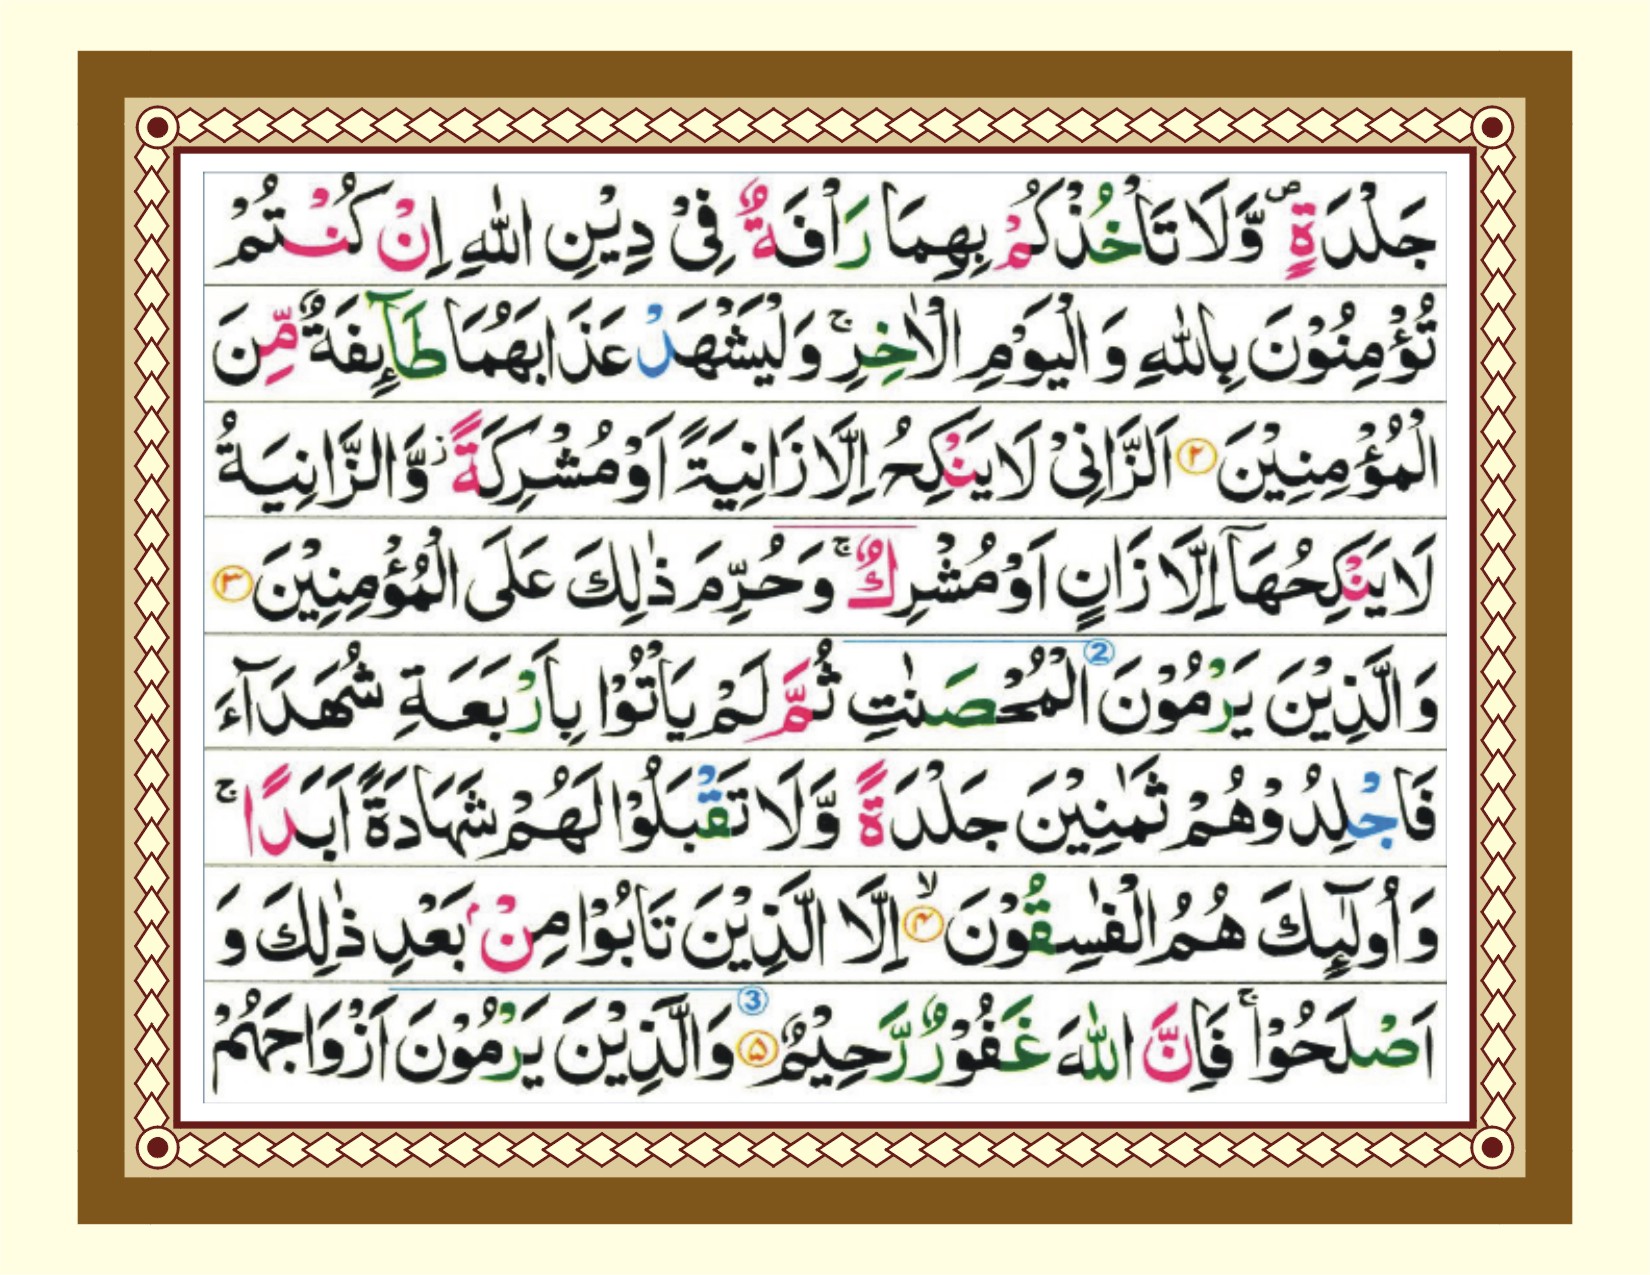 جَلْدَةٍ ۪ وَّلَا تَاْخُذْكُمْ بِهِمَا رَاْفَةٌ فِیْ دِیْنِ اللّٰهِ اِنْ كُنْتُمْ
تُؤْمِنُوْنَ بِاللّٰهِ وَ الْیَوْمِ الْاٰخِرِ ۚ وَلْیَشْهَدْ عَذَابَهُمَا طَآىِٕفَةٌ مِّنَ
الْمُؤْمِنِیْنَ ۲ اَلزَّانِیْ لَا یَنْكِحُ اِلَّا زَانِیَةً اَوْ مُشْرِكَةً ؗ وَّ الزَّانِیَةُ
لَا یَنْكِحُهَاۤ اِلَّا زَانٍ اَوْ مُشْرِكٌ ۚ وَحُرِّمَ ذٰلِكَ عَلَی الْمُؤْمِنِیْنَ ۳
وَالَّذِیْنَ یَرْمُوْنَ 2 الْمُحْصَنٰتِ ثُمَّ لَمْ یَاْتُوْا بِاَرْبَعَةِ شُهَدَآءَ
فَاجْلِدُوْهُمْ ثَمٰنِیْنَ جَلْدَةً وَّلَا تَقْبَلُوْا لَهُمْ شَهَادَةً اَبَدًا ۚ
وَاُولٰٓىِٕكَ هُمُ الْفٰسِقُوْنَ ۙ ۴ اِلَّا الَّذِیْنَ تَابُوْا مِنْۢ بَعْدِ ذٰلِكَ وَ
اَصْلَحُوْا ۚ فَاِنَّ اللّٰهَ غَفُوْرٌ رَّحِیْمٌ ۵ 3 وَالَّذِیْنَ یَرْمُوْنَ اَزْوَاجَهُمْ